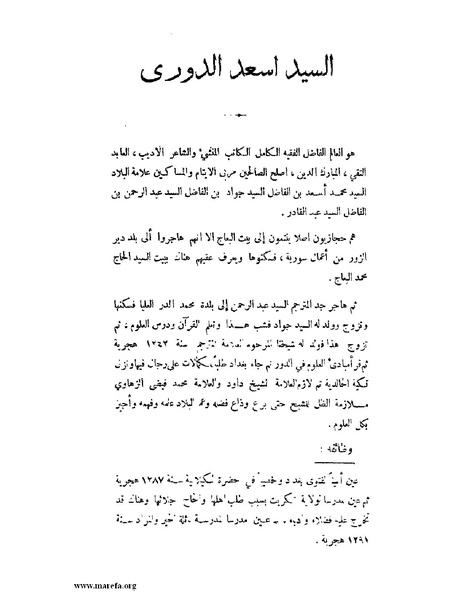 السيد اسعد الدورى
هو العالم الفاضل الفقيه الكامل الكاتب المنشئ والشاعر الاديب ، العابد
التقي ، المبارك الدين ، اصلح الصالحين مربي الايتام والمساكين علامة البلاد
السيد محمد أسعد بن الفاضل السيد جواد بن الفاضل السيد عبد الرحمن بن
الفاضل السيد عبد القادر .
هم حجازيون اصلا ينتمون إلى بيت البعاج الا انهم هاجروا ألى بلد دير
الزور من أعمال سورية ، فسكنوها ويعرف عقبهم هناك ببيت السيد الحاج
محمد البعاج .
ثم هاجر جد المترجم السيد عبد الرحمن إلى بلدة محمد الدر العليا فسكنها
وتزوج وولد له السيد جواد فشب هذا وتعلم القرآن ودرس العلوم ، ثم
تزوج هذا فولد له شيخنا المرحوم العلامة المترجم سنة ١٢٤٣ هجرية
ثم قرأ مبادئ العلوم في الدور ثم جاء بغداد على رجال فيها ونزل
تكية الخالدية ثم لازم العلامة الشيخ داود والعلامة محمد فيضي الزهاوي
ملازمة الظل للشبح حتى برع وذاع فضله وعم البلاد علمه وفهمه وأجيز
بكل العلوم .
وظائفه :
عين أمينا لفتوى بغداد في حضرة سنة ١٢٨٧ هجرية
ثم عين مدرسا لولاية تكريت بسبب طلب اهلها هناك قد
تخرج عليه فضلاء عين مدرسا لمدرسة سنة
١٢٩١ هجرية .
www.marefa.org